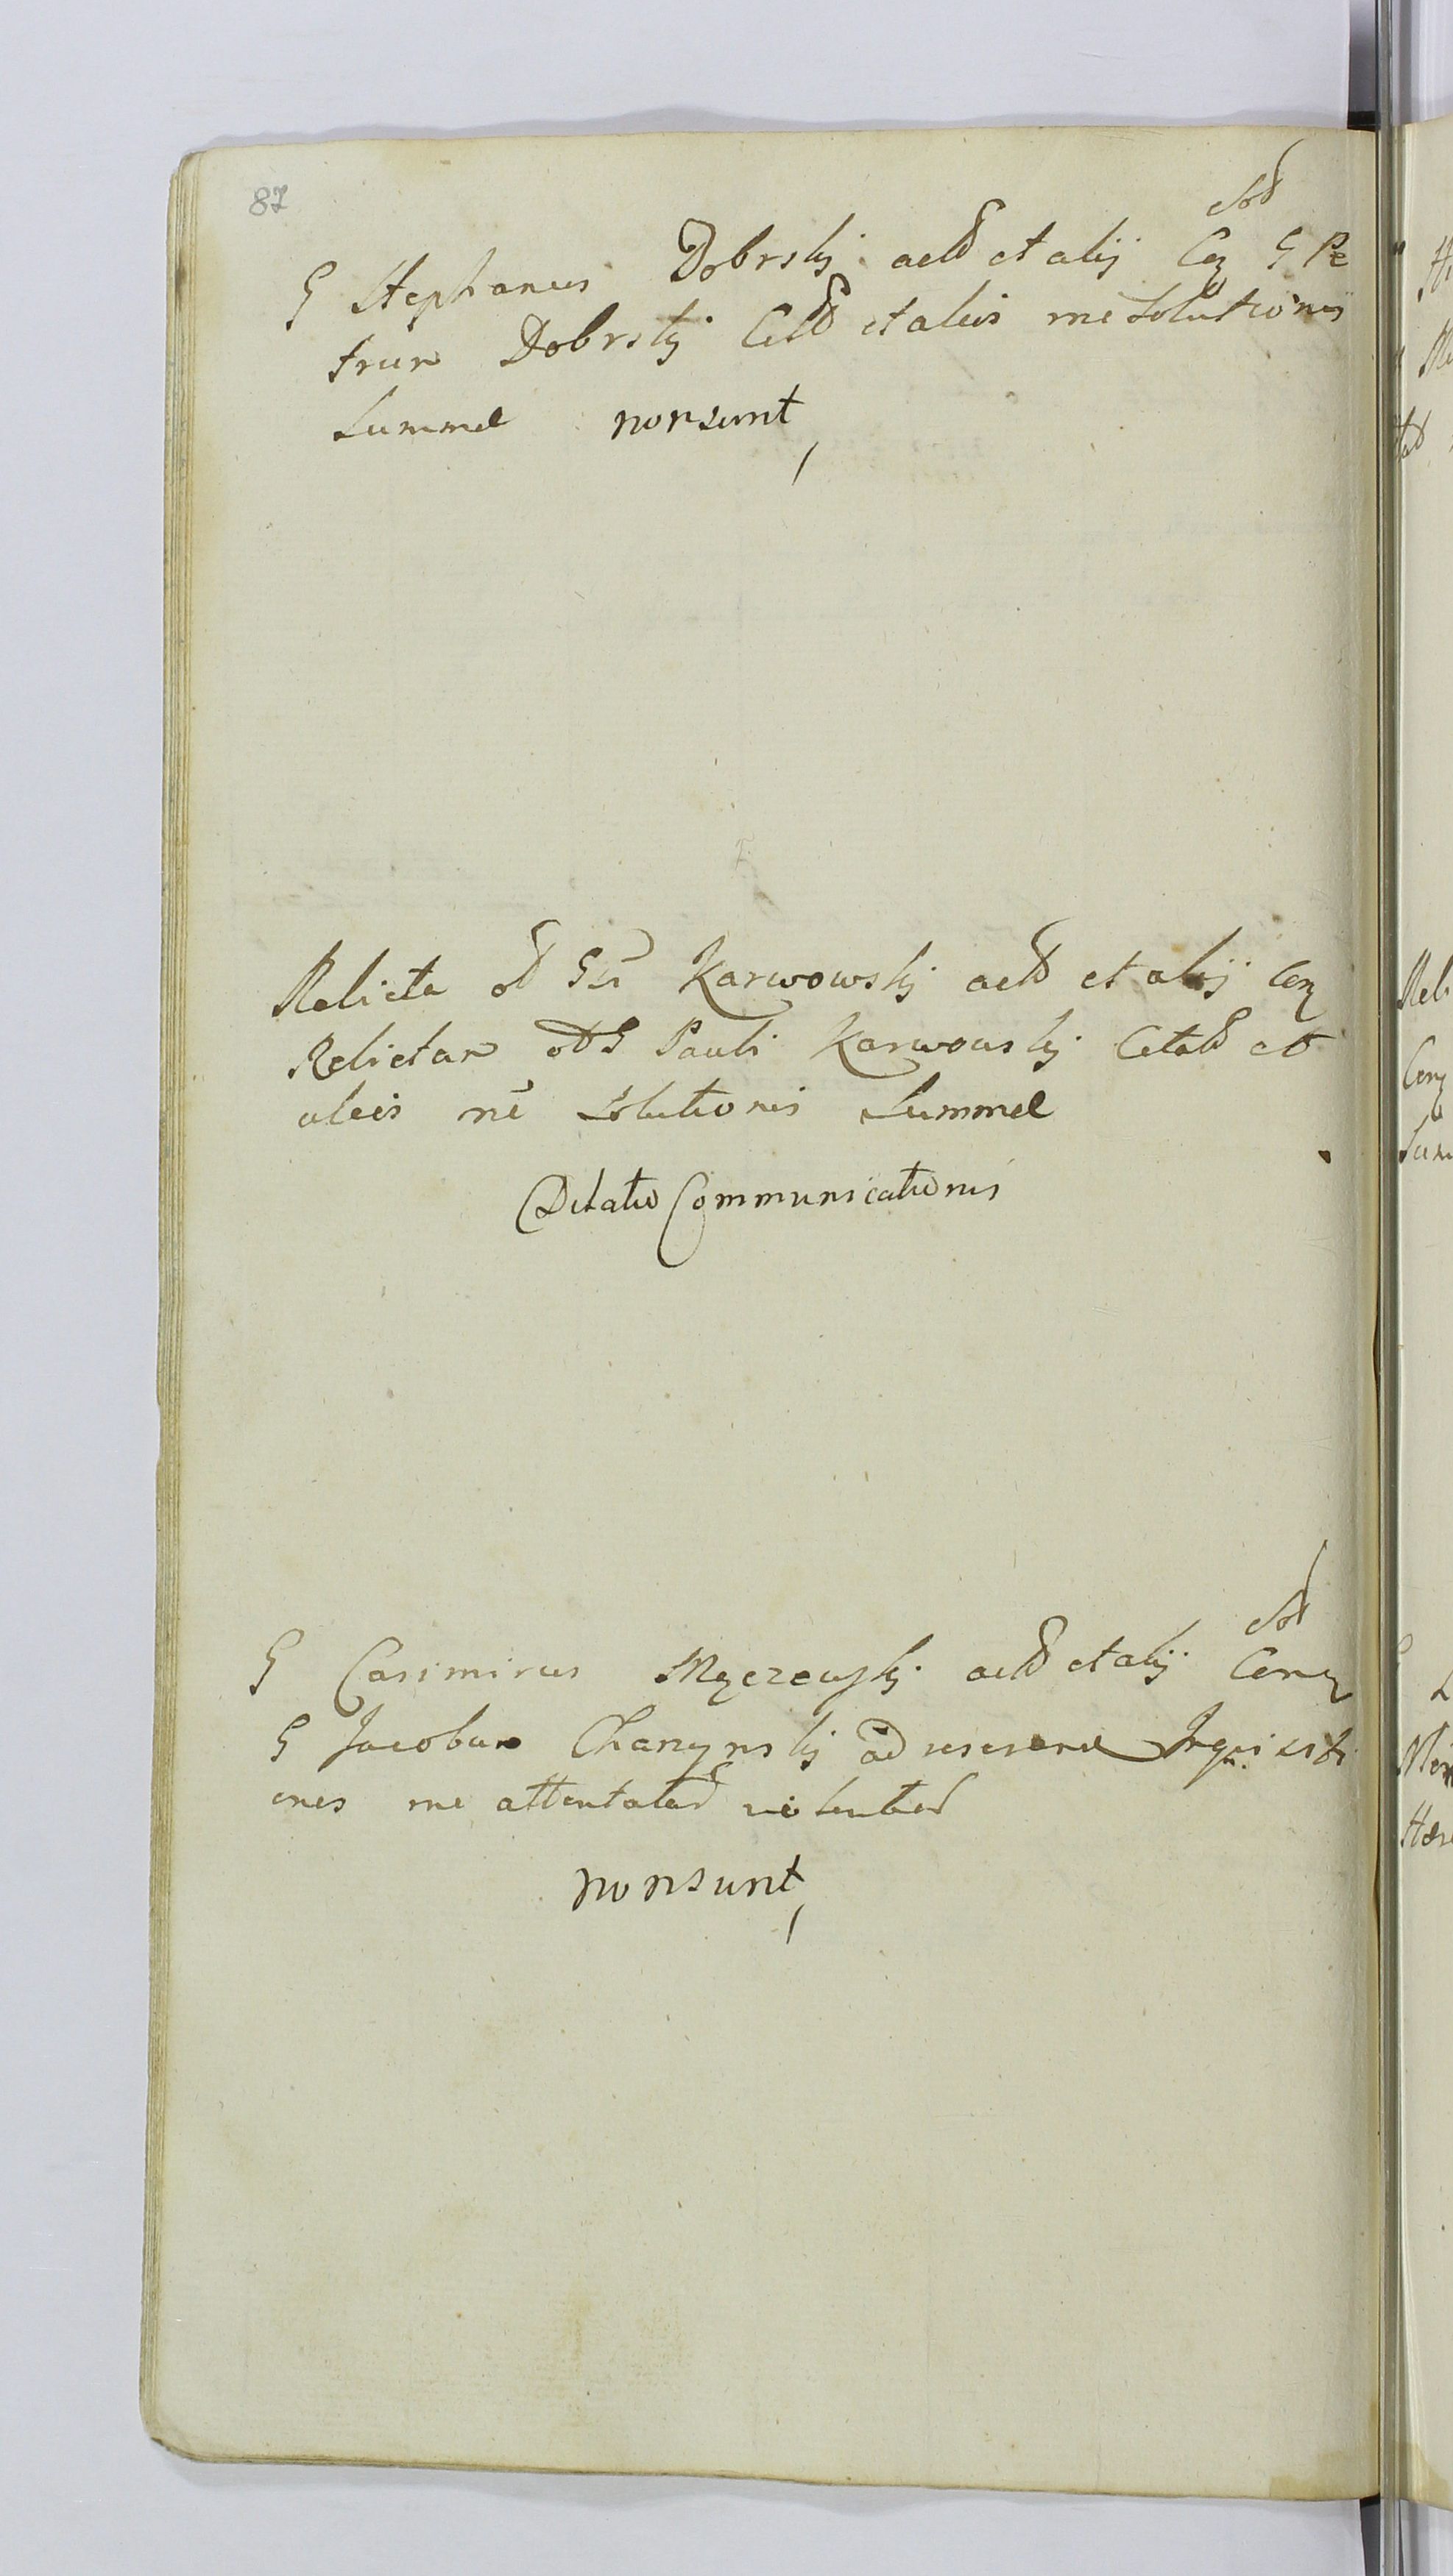 87
sol
G Stephanus Dobrskj actd et alij Con G Pe
trum Dobrskj Cittd et aleis rne Solutionis
Summae non sunt
Relicta od Karwowskj actd et alij Con
Relictam od G Pauli Karwowskj Citatd et
aleis rne Solutionis Summae
Dilatio Communicationis
sol
G Casimirus Męczewskj actd et alij Con
G Jacobum Charynskj ad Inquisiti
ones rne attentatad violentad
non sunt